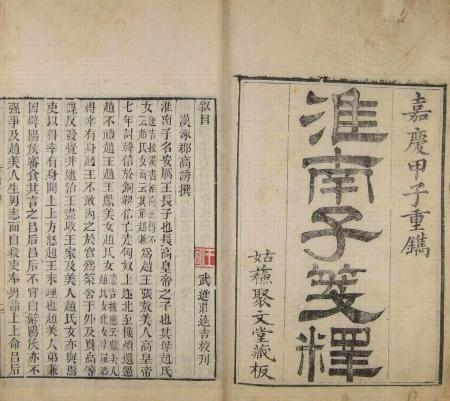 嘉慶甲子重鐫
淮南子箋釋
姑蘓聚文堂藏板
武進莊逵吉校刊
叙目
漢涿郡高誘撰
淮南子名安厲王長子也長高皇帝之子也其母趙氏
女為趙王張敖美人高皇帝
七年討韓信於銅鞮信亡走匈奴上遂北至樓煩還過
趙不禮趙王趙王獻美女趙氏女
得幸有身趙王不敢內之於宮為築舍于外及貫高等
謀反發覺并逮治王盡收王家及美人趙氏女亦與焉
吏以得幸有身聞上上方怒趙王未理也趙美人弟兼
因辟陽侯審食其言之呂后呂后不肯白辟陽侯亦不
強爭及趙美人生男恚而自殺吏奉男詣上上命呂后